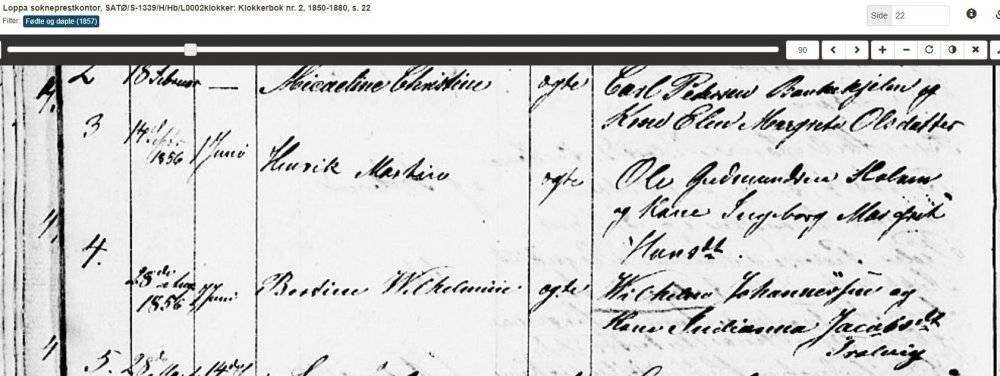 Loppa sokneprestkontor, SATØ/S-1339/H/Hb/L0002klokker: Klokkerbok nr. 2, 1850-1880, s. 22
Filter: Fødte og døpte (1857)
Side 22
90
2 18 Februar — Micaeline Christine ogte Carl Petersen
Kone Elen Margrete Olsdatter
3 14de 1856 17 Juni
Henrik Martin ogte Ole Gudmundsen
og Kone Ingborg Margrit
Hansdt.
4. 28de 1856 17 Juni Bertine Wilhelmine ogte Wilhelm Johannessen og
Kone Indianna Jacobsdt
5. 28de 14de